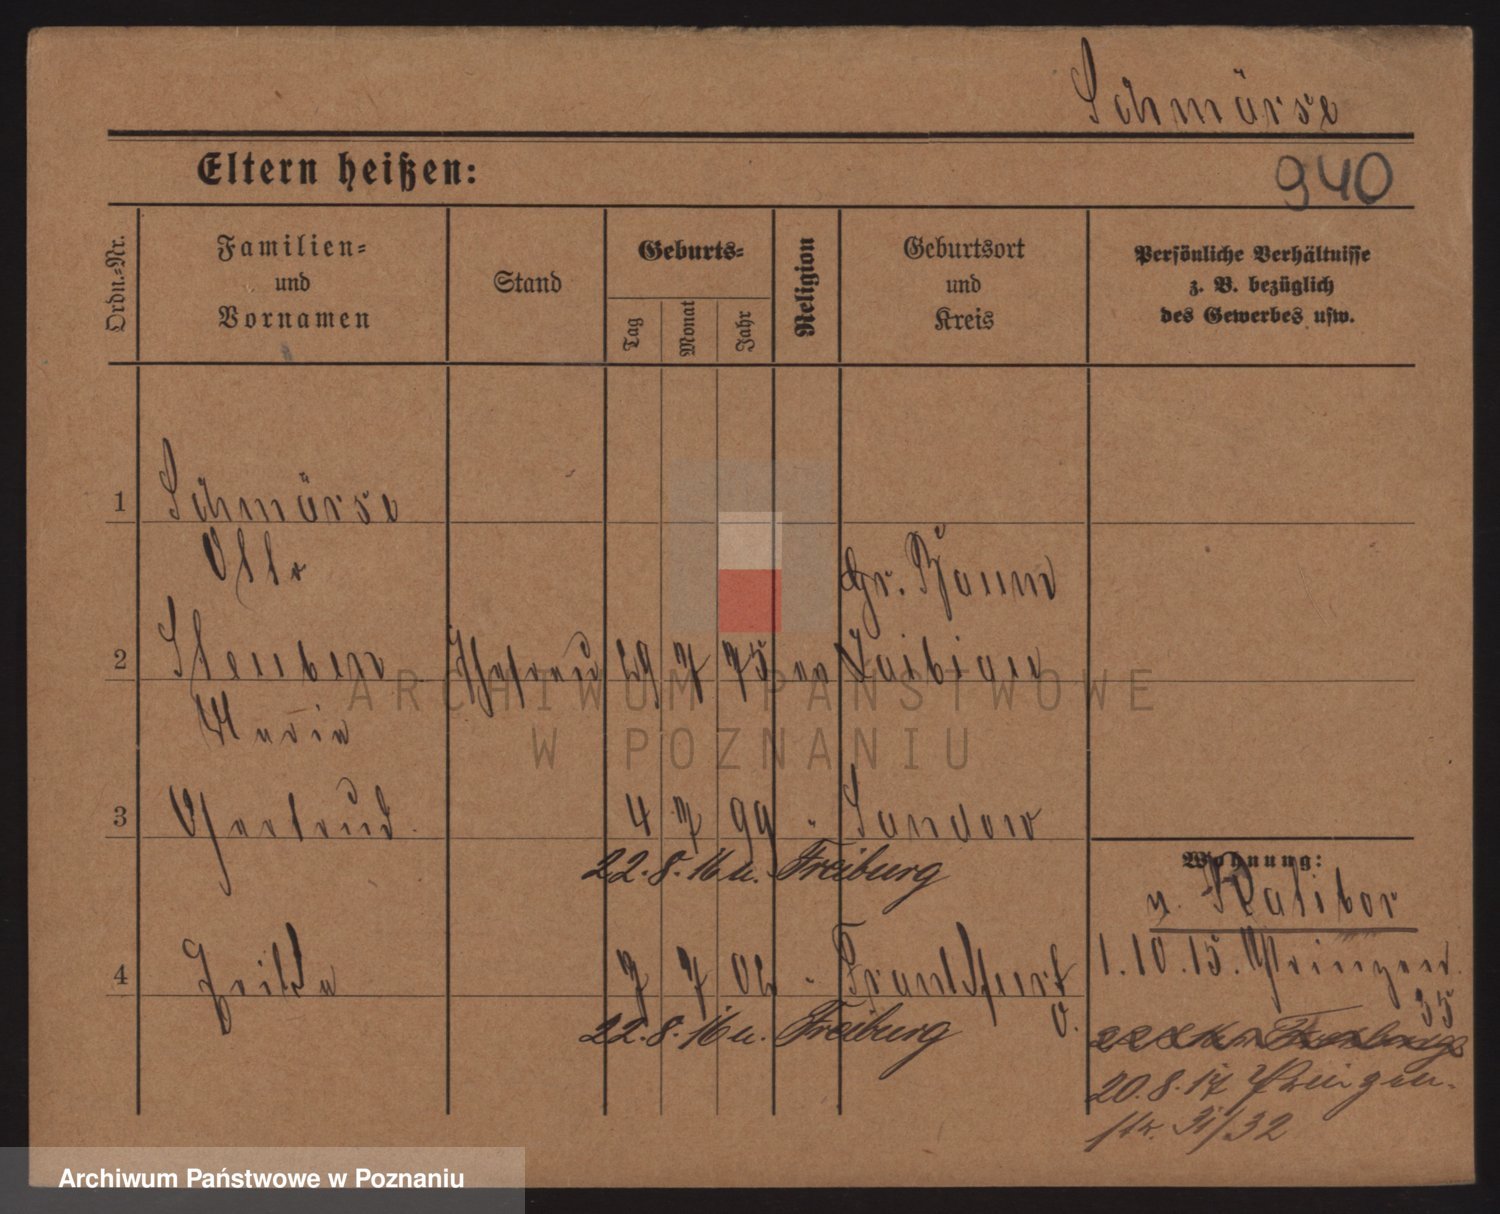 Schmörse
Eltern heißen:
940
Ordn.-Nr.
Familien-
und
Vornamen
Stand
Geburts-
Tag
Monat
Jahr
Religion
Geburtsort
und
Kreis
Persönliche Verhältnisse
z. B. bezüglich
des Gewerbes usw.
1 Schmörse
Otto
Gr. Baum
2 Steuben Ehefrau 29 7 75 ev Labiau
Marie
3 Gertrud 4 7 99 " Sandow
22.8.16 u. Freiburg
Wohnung:
v. Ratibor
4 7 7 02 " Frankfurt
O.
1.10.15. Prinzen
35
22.8.16 u. Freiburg
20.8.17 Prinzen-
str. 31/32
ARCHIWUM PAŃSTWOWE
W POZNANIU
Archiwum Państwowe w Poznaniu